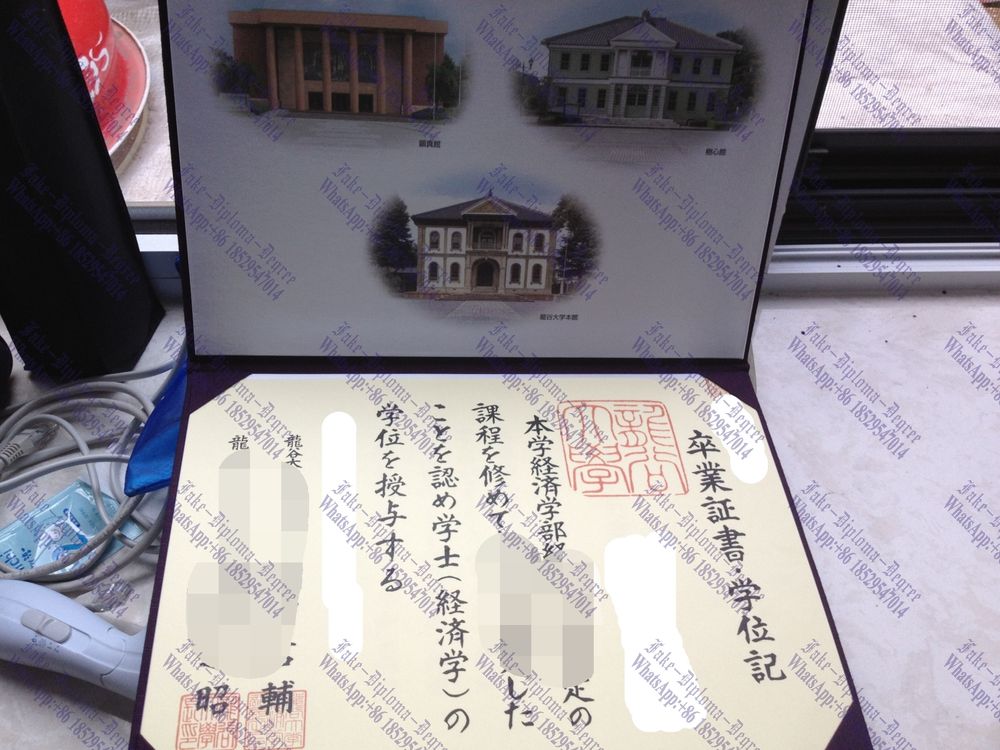 顕真館
樹心館
龍谷大学本館
卒業証書・学位記
龍谷大學
本学経済学部経
定の
課程を修めて
した
ことを認め学士(経済学)の
学位を授与する
龍谷大
輔
龍
昭
Fake-Diploma-Degree
WhatsApp:+86 18529547014